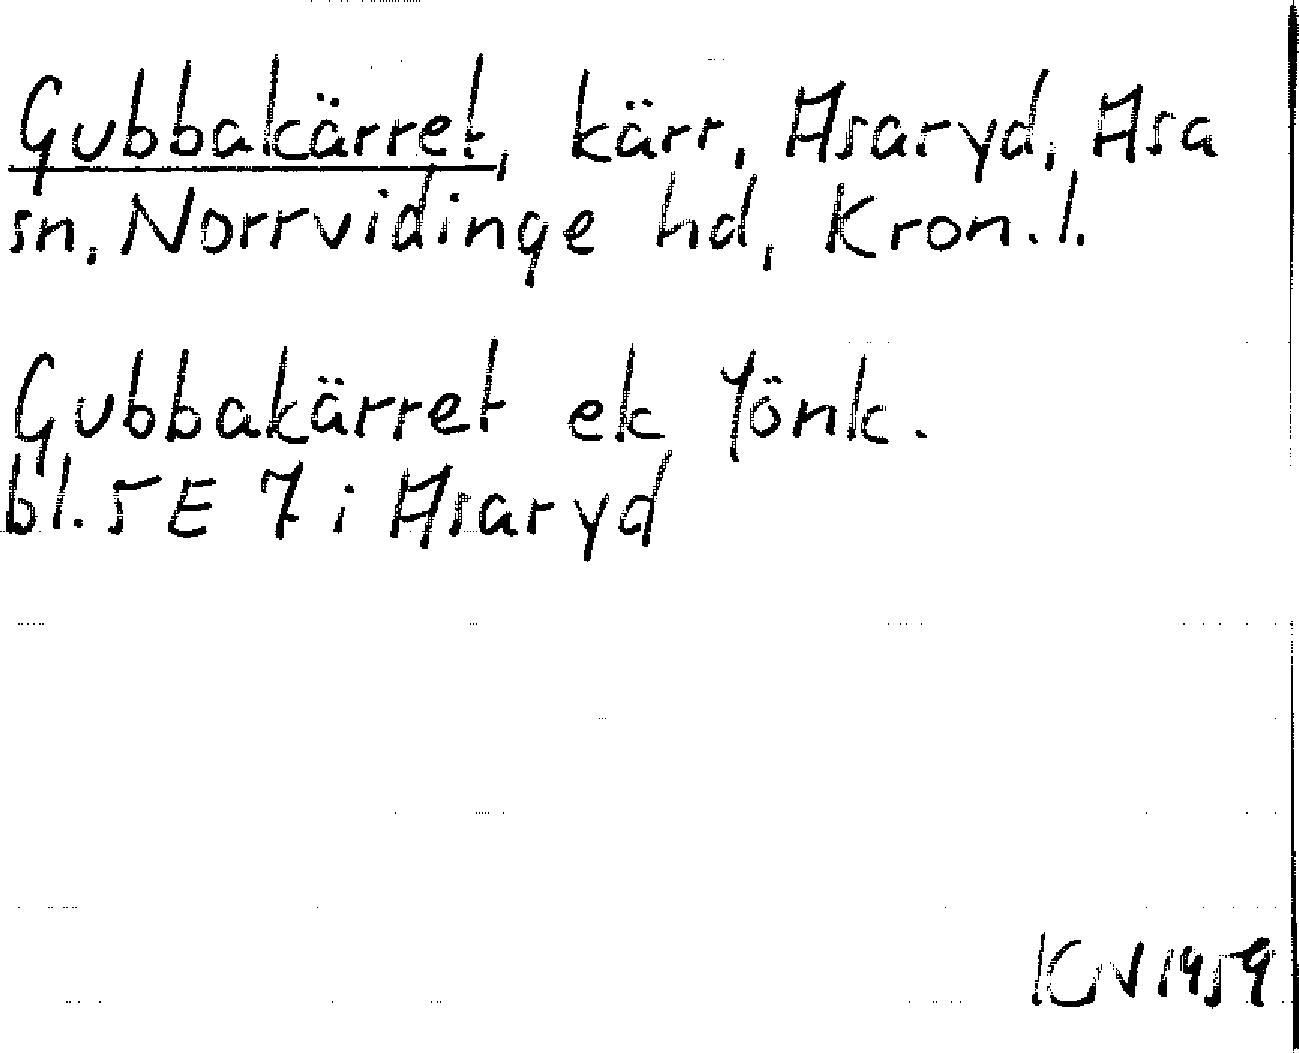 Gubbakärret, kärr, Asaryd, Asa
sn, Norrvidinge hd, Kron. l.
Gubbakärret ek Jönk.
bl. 5 E 7 i Asaryd
KGV 1959